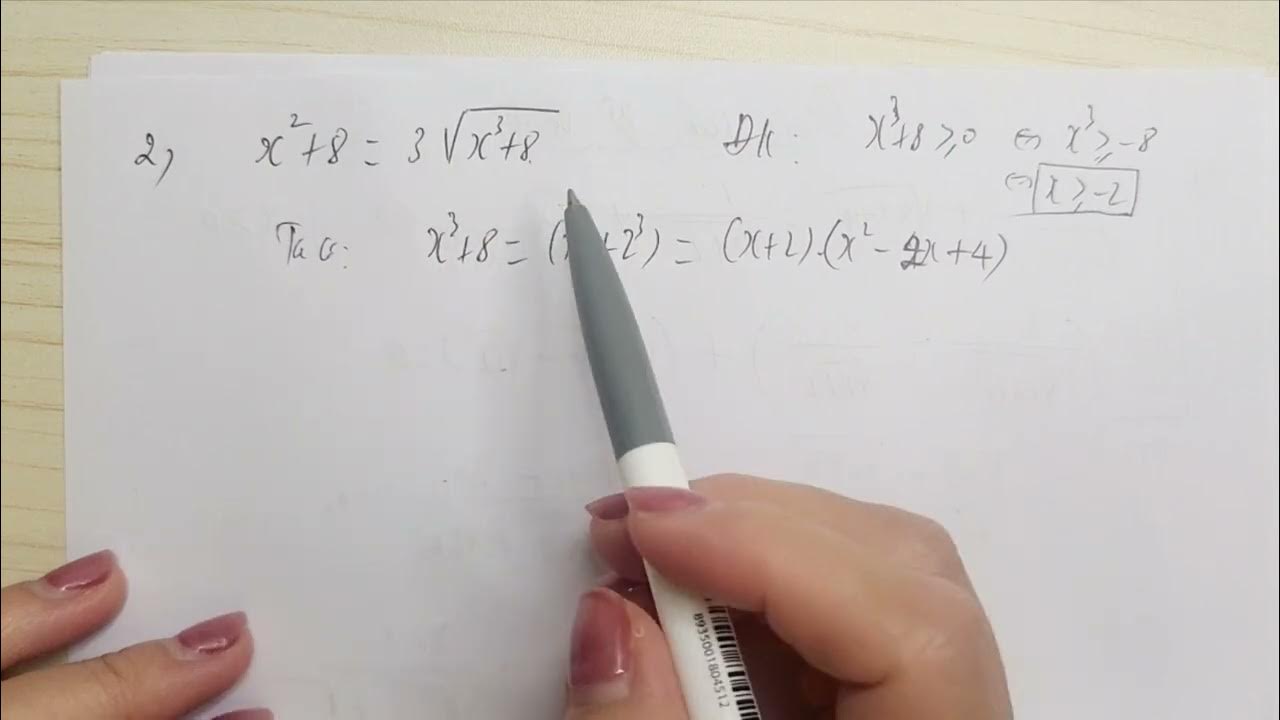 2) x²+8 = 3√(x³+8) ĐK: x³+8 ≥ 0 ⇔ x³ ≥ -8
⇔ x ≥ -2
Ta có: x³+8 = ( +2³) = (x+2).(x² - 2x+4)
8935001804512